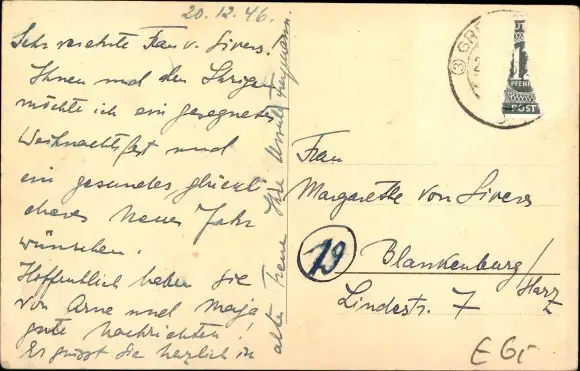 20.12.46.
Sehr verehrte Frau v. Sivers!
Ihnen und den Ihrigen
möchte ich ein gesegnetes
Weihnachtsfest und
ein gesundes, glückli-
ches Neues Jahr
wünschen.
Hoffentlich haben Sie
von Arne und Maja
gute Nachrichten!
Es grüsst Sie herzlich in
alter Treue Ihre
GR
PFENN
POST
Frau
Margarethe von Sivers
19
Blankenburg/
Harz
Lindestr. 7